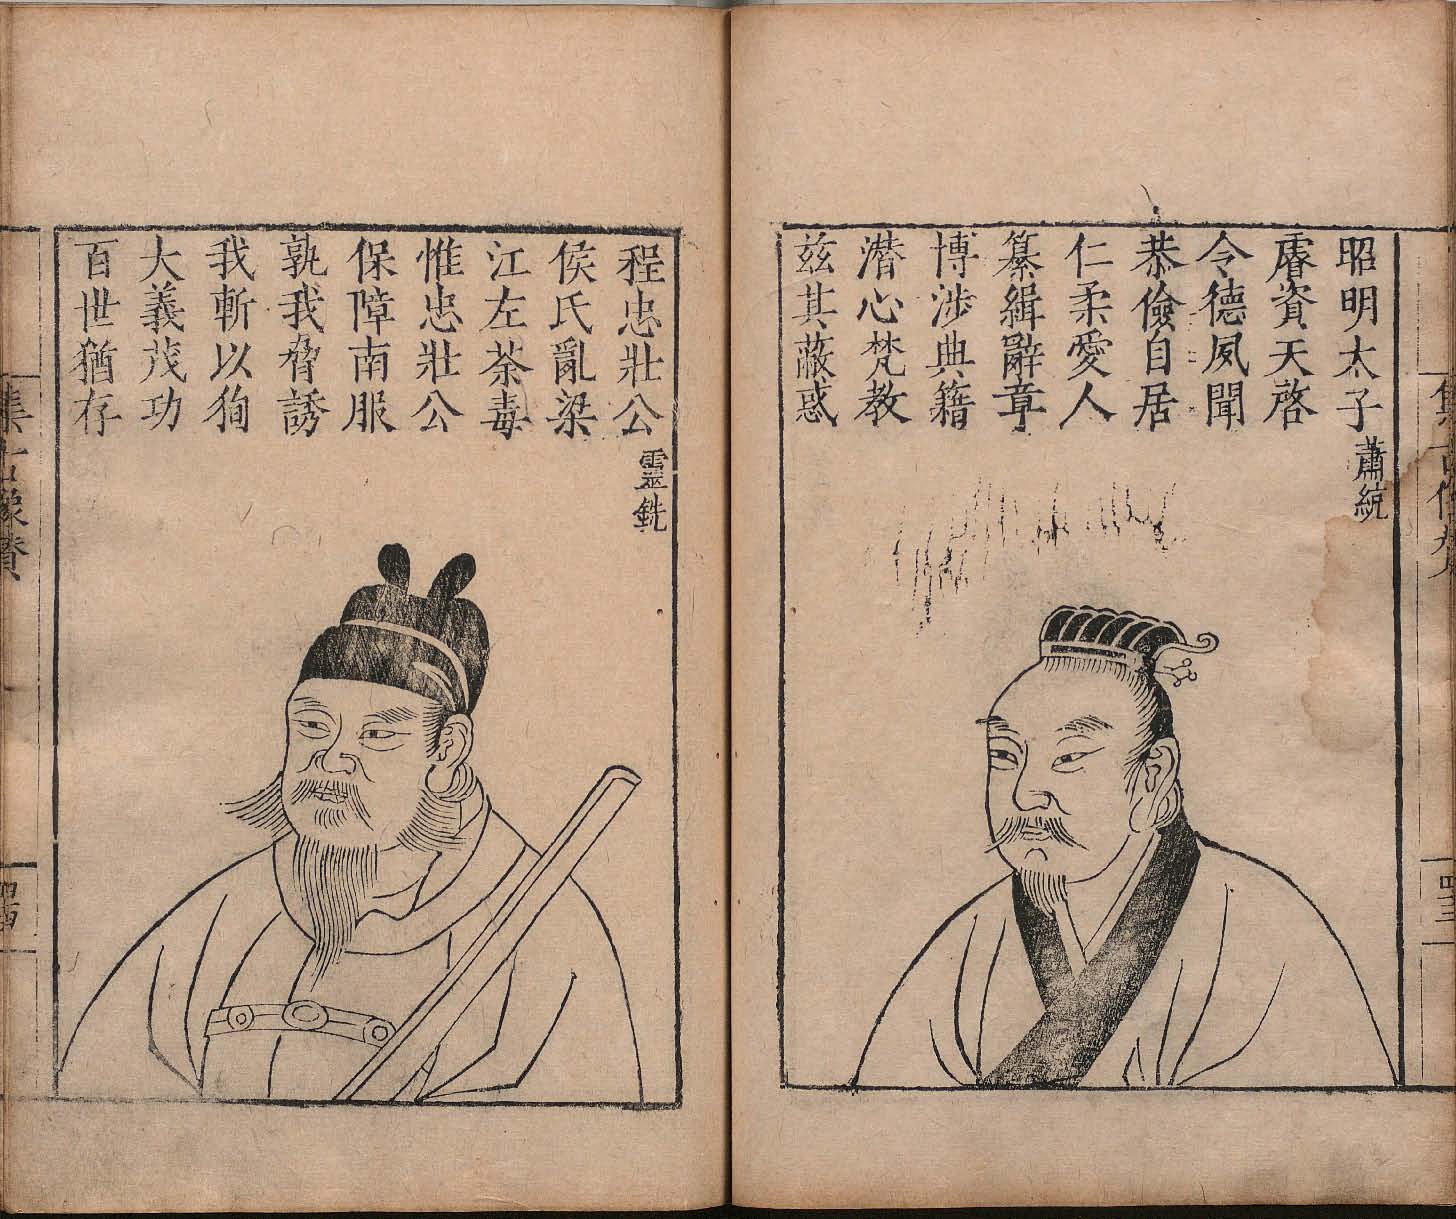 昭明太子 蕭統
睿資天啓
令德夙聞
恭儉自居
仁柔愛人
纂緝辭章
博涉典籍
潜心梵教
兹其蔽惑
四三
程忠壯公 靈銑
侯氏亂梁
江左荼毒
惟忠壯公
保障南服
孰我脅誘
我斬以狥
大義茂功
百世猶存
集古像賛